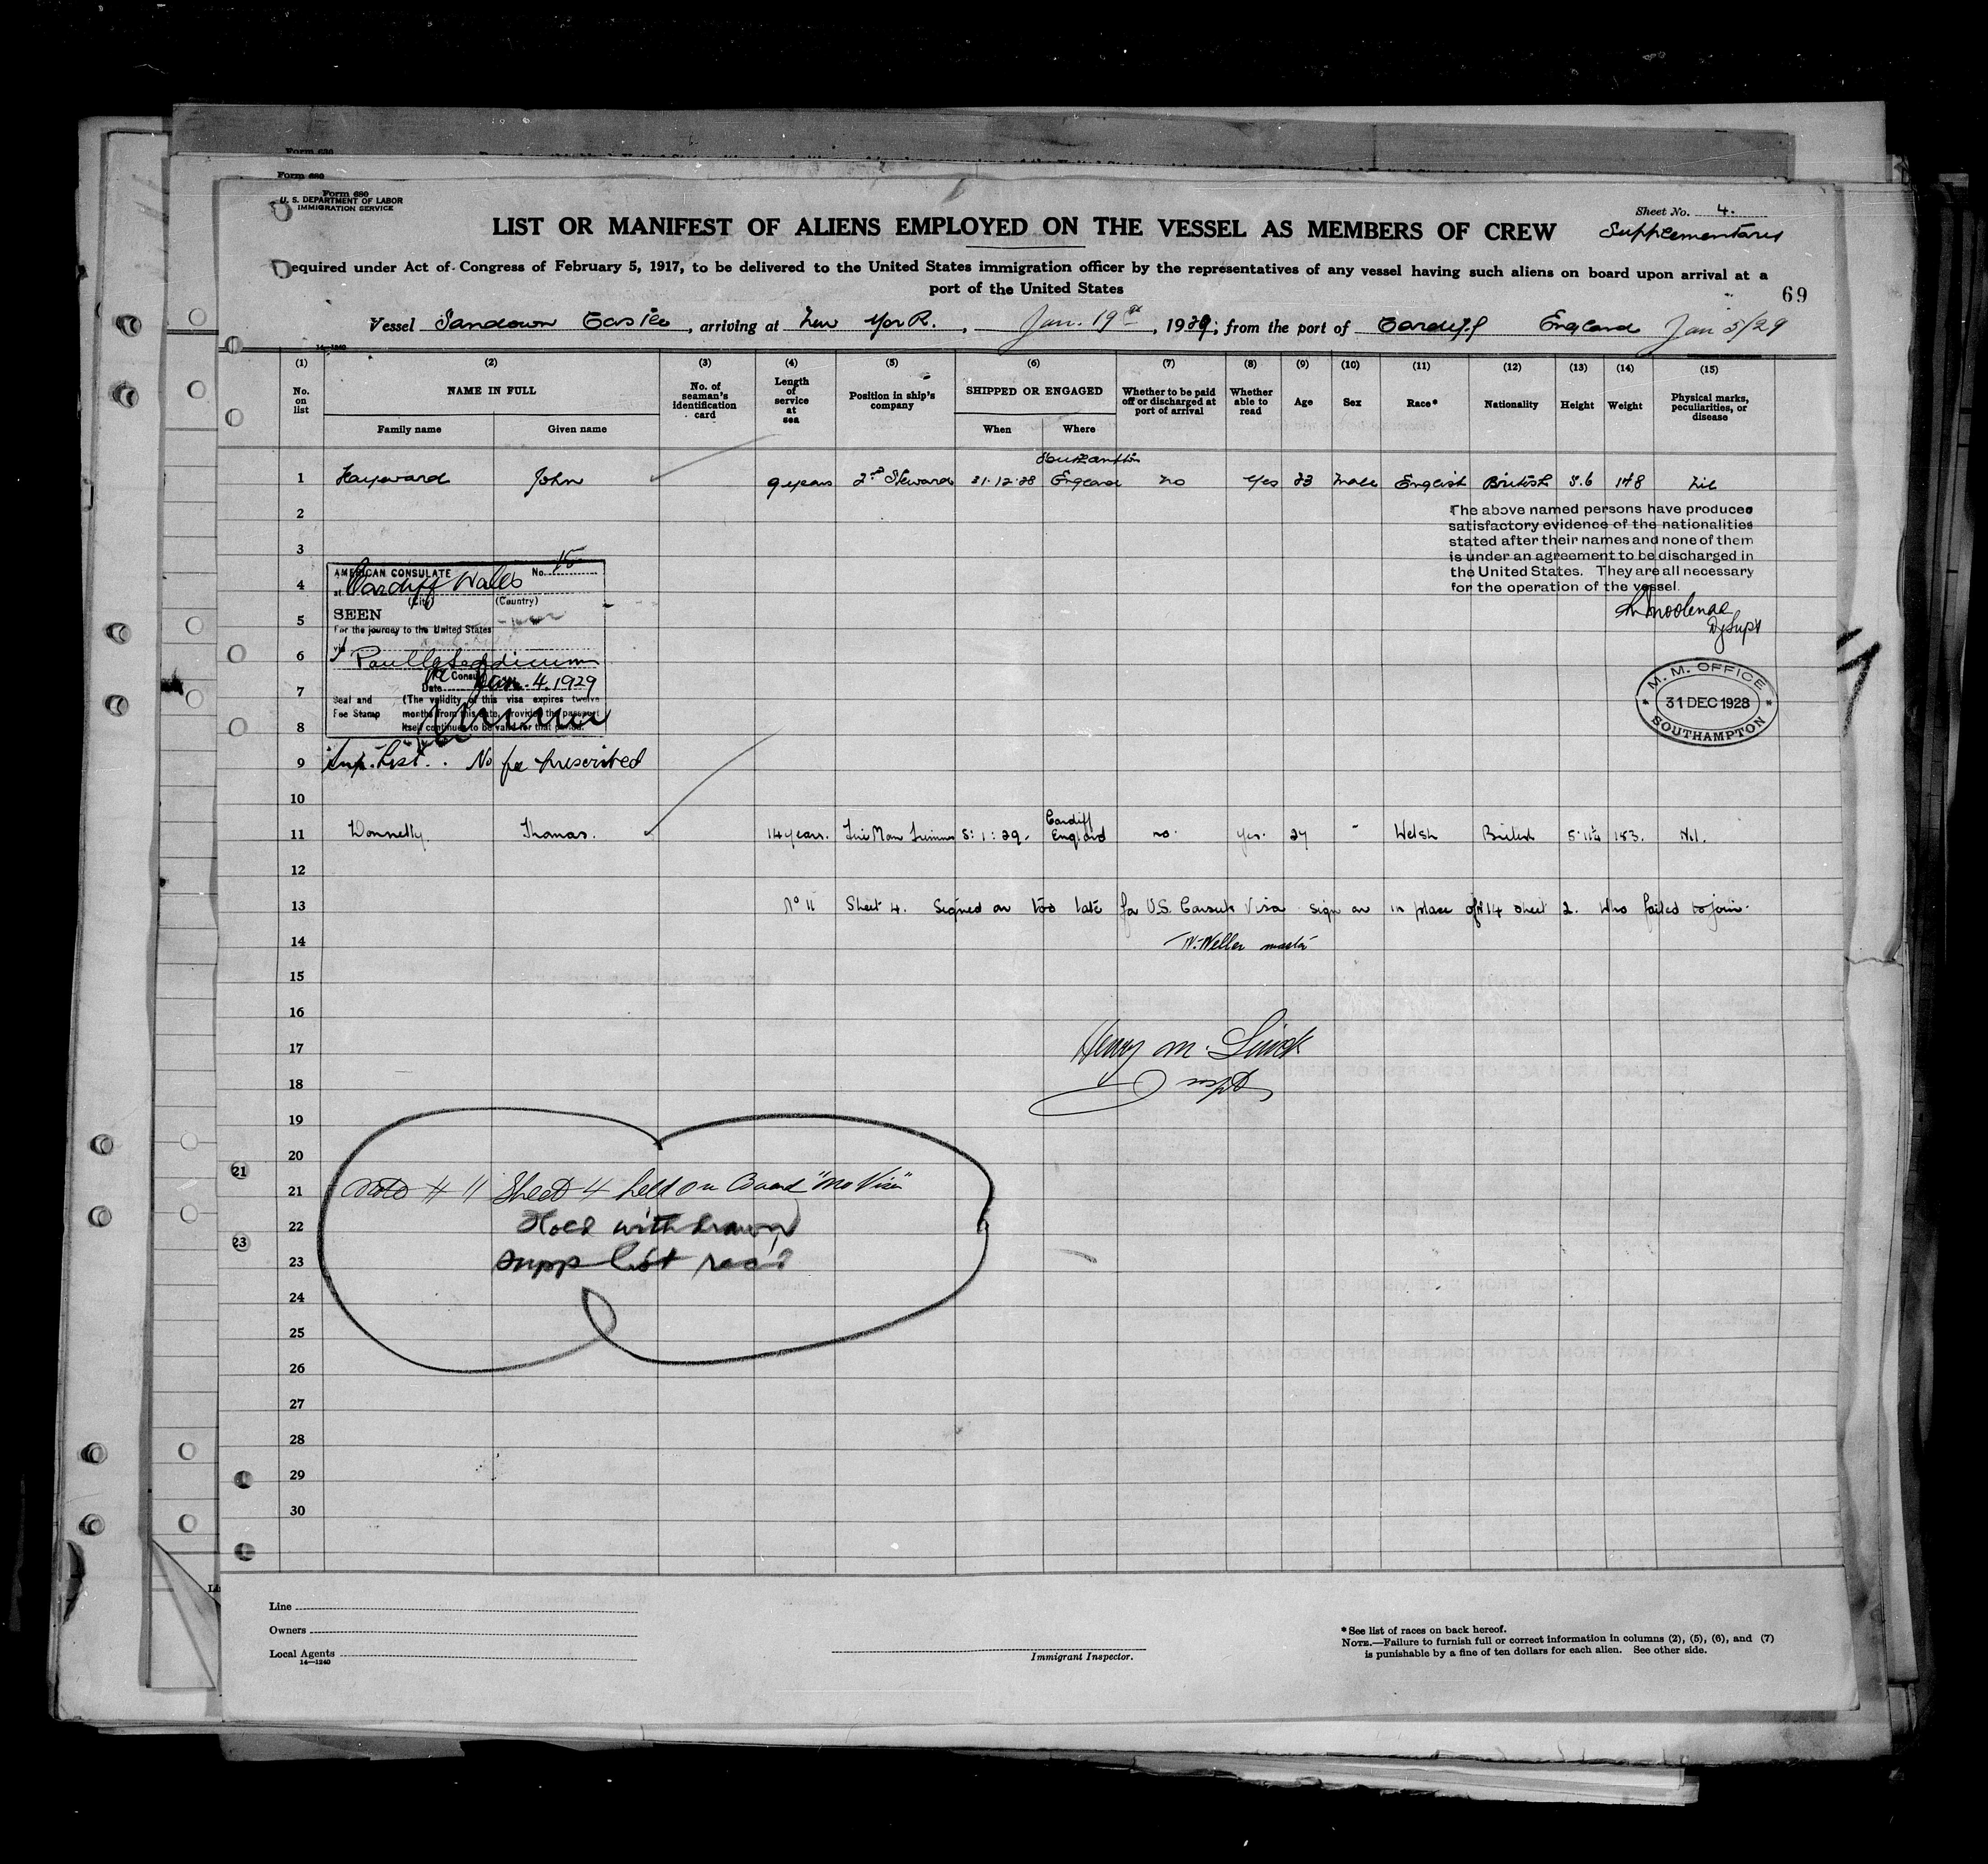 Form 680
Form 680
Form 680
U. S. DEPARTMENT OF LABOR
IMMIGRATION SERVICE
Sheet No. 4.
Supplementary
LIST OR MANIFEST OF ALIENS EMPLOYED ON THE VESSEL AS MEMBERS OF CREW
equired under Act of Congress of February 5, 1917, to be delivered to the United States immigration officer by the representatives of any vessel having such aliens on board upon arrival at a
port of the United States
69
Vessel Sandown Castle, arriving at New York., Jan. 19th, 1929; from the port of Cardiff England Jan 5/29
14-1240
(1) (2) (3) (4) (5) (6) (7) (8) (9) (10) (11) (12) (13) (14) (15)
No. on list NAME IN FULL No. of seaman's identification card Length of service at sea Position in ship's company SHIPPED OR ENGAGED Whether to be paid off or discharged at port of arrival Whether able to read Age Sex Race* Nationality Height Weight Physical marks, peculiarities, or disease
Family name Given name When Where
1 Hayward John 9 years 2nd Steward 31.12.28 Southampton England no Yes 23 male English British 5.6 148 nil
2
The above named persons have produced
satisfactory evidence of the nationalities
stated after their names and none of them
is under an agreement to be discharged in
the United States. They are all necessary
for the operation of the vessel.
Dy Supt
3
AMERICAN CONSULATE No. 15
4
at Cardiff Wales
(City) (Country)
5
SEEN
For the journey to the United States
6
via
Consul
7
Date Jan. 4. 1929
Seal and Fee Stamp (The validity of this visa expires twelve
months from this date, provided the passport
itself continues to be valid for that period.
8
M. M. OFFICE
31 DEC 1928
SOUTHAMPTON
9 Sup. List. No fee prescribed
10
11 Donnelly Thomas. 14 years. Fire Man Trimmer 5:1:29. Cardiff England no. yes. 27 " Welsh British 5.11¼ 183. Nil.
12
13 No 11 Sheet 4. Signed on too late for U.S. Consuls Visa sign on in place of No 14 sheet 2. who failed to join.
14 W. Weller master
15
16
17 Henry M.
18 Inspt
19
20
21 Note # 11 Sheet 4 held on Board "No Visa"
22 Hold withdrawn
23 supp list rec'd
24
25
26
27
28
29
30
21
23
Line
Owners
Local Agents
14—1240
Immigrant Inspector.
*See list of races on back hereof.
NOTE.—Failure to furnish full or correct information in columns (2), (5), (6), and (7)
is punishable by a fine of ten dollars for each alien. See other side.